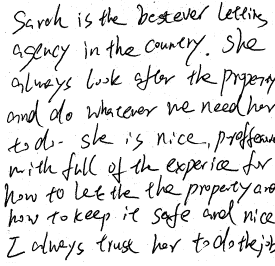 Sarah is the best ever letting
agency in the country. She
always look after the property
and do whatever we need her
to do. she is nice, proffessi
with full of the experice for
how to let the the property and
how to keep it safe and nice
I always trust her to do the job